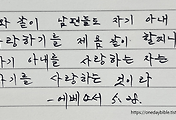 와 같이 남편들도 자기 아내
사랑하기를 제 몸같이 할찌니
기 아내를 사랑하는 자는
기를 사랑하는 것이라
-에베소서 5:28
https://onedaybible.tist